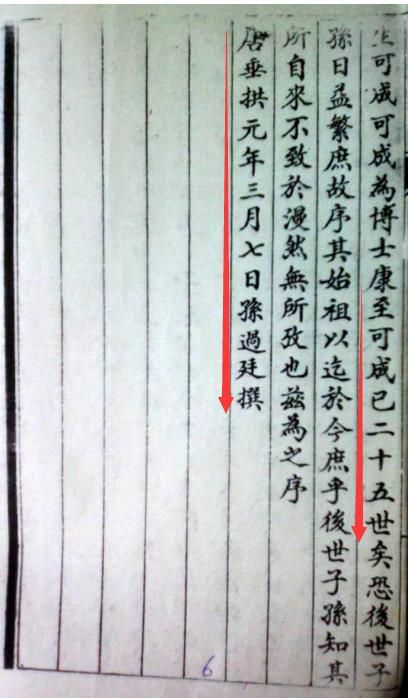 生可成可成為博士康至可成已二十五世矣恐後世子
孫日益繁庶故序其始祖以迄於今庶乎後世子孫知其
所自來不致於漫然無所攷也茲為之序
唐垂拱元年三月七日孫過廷撰
6